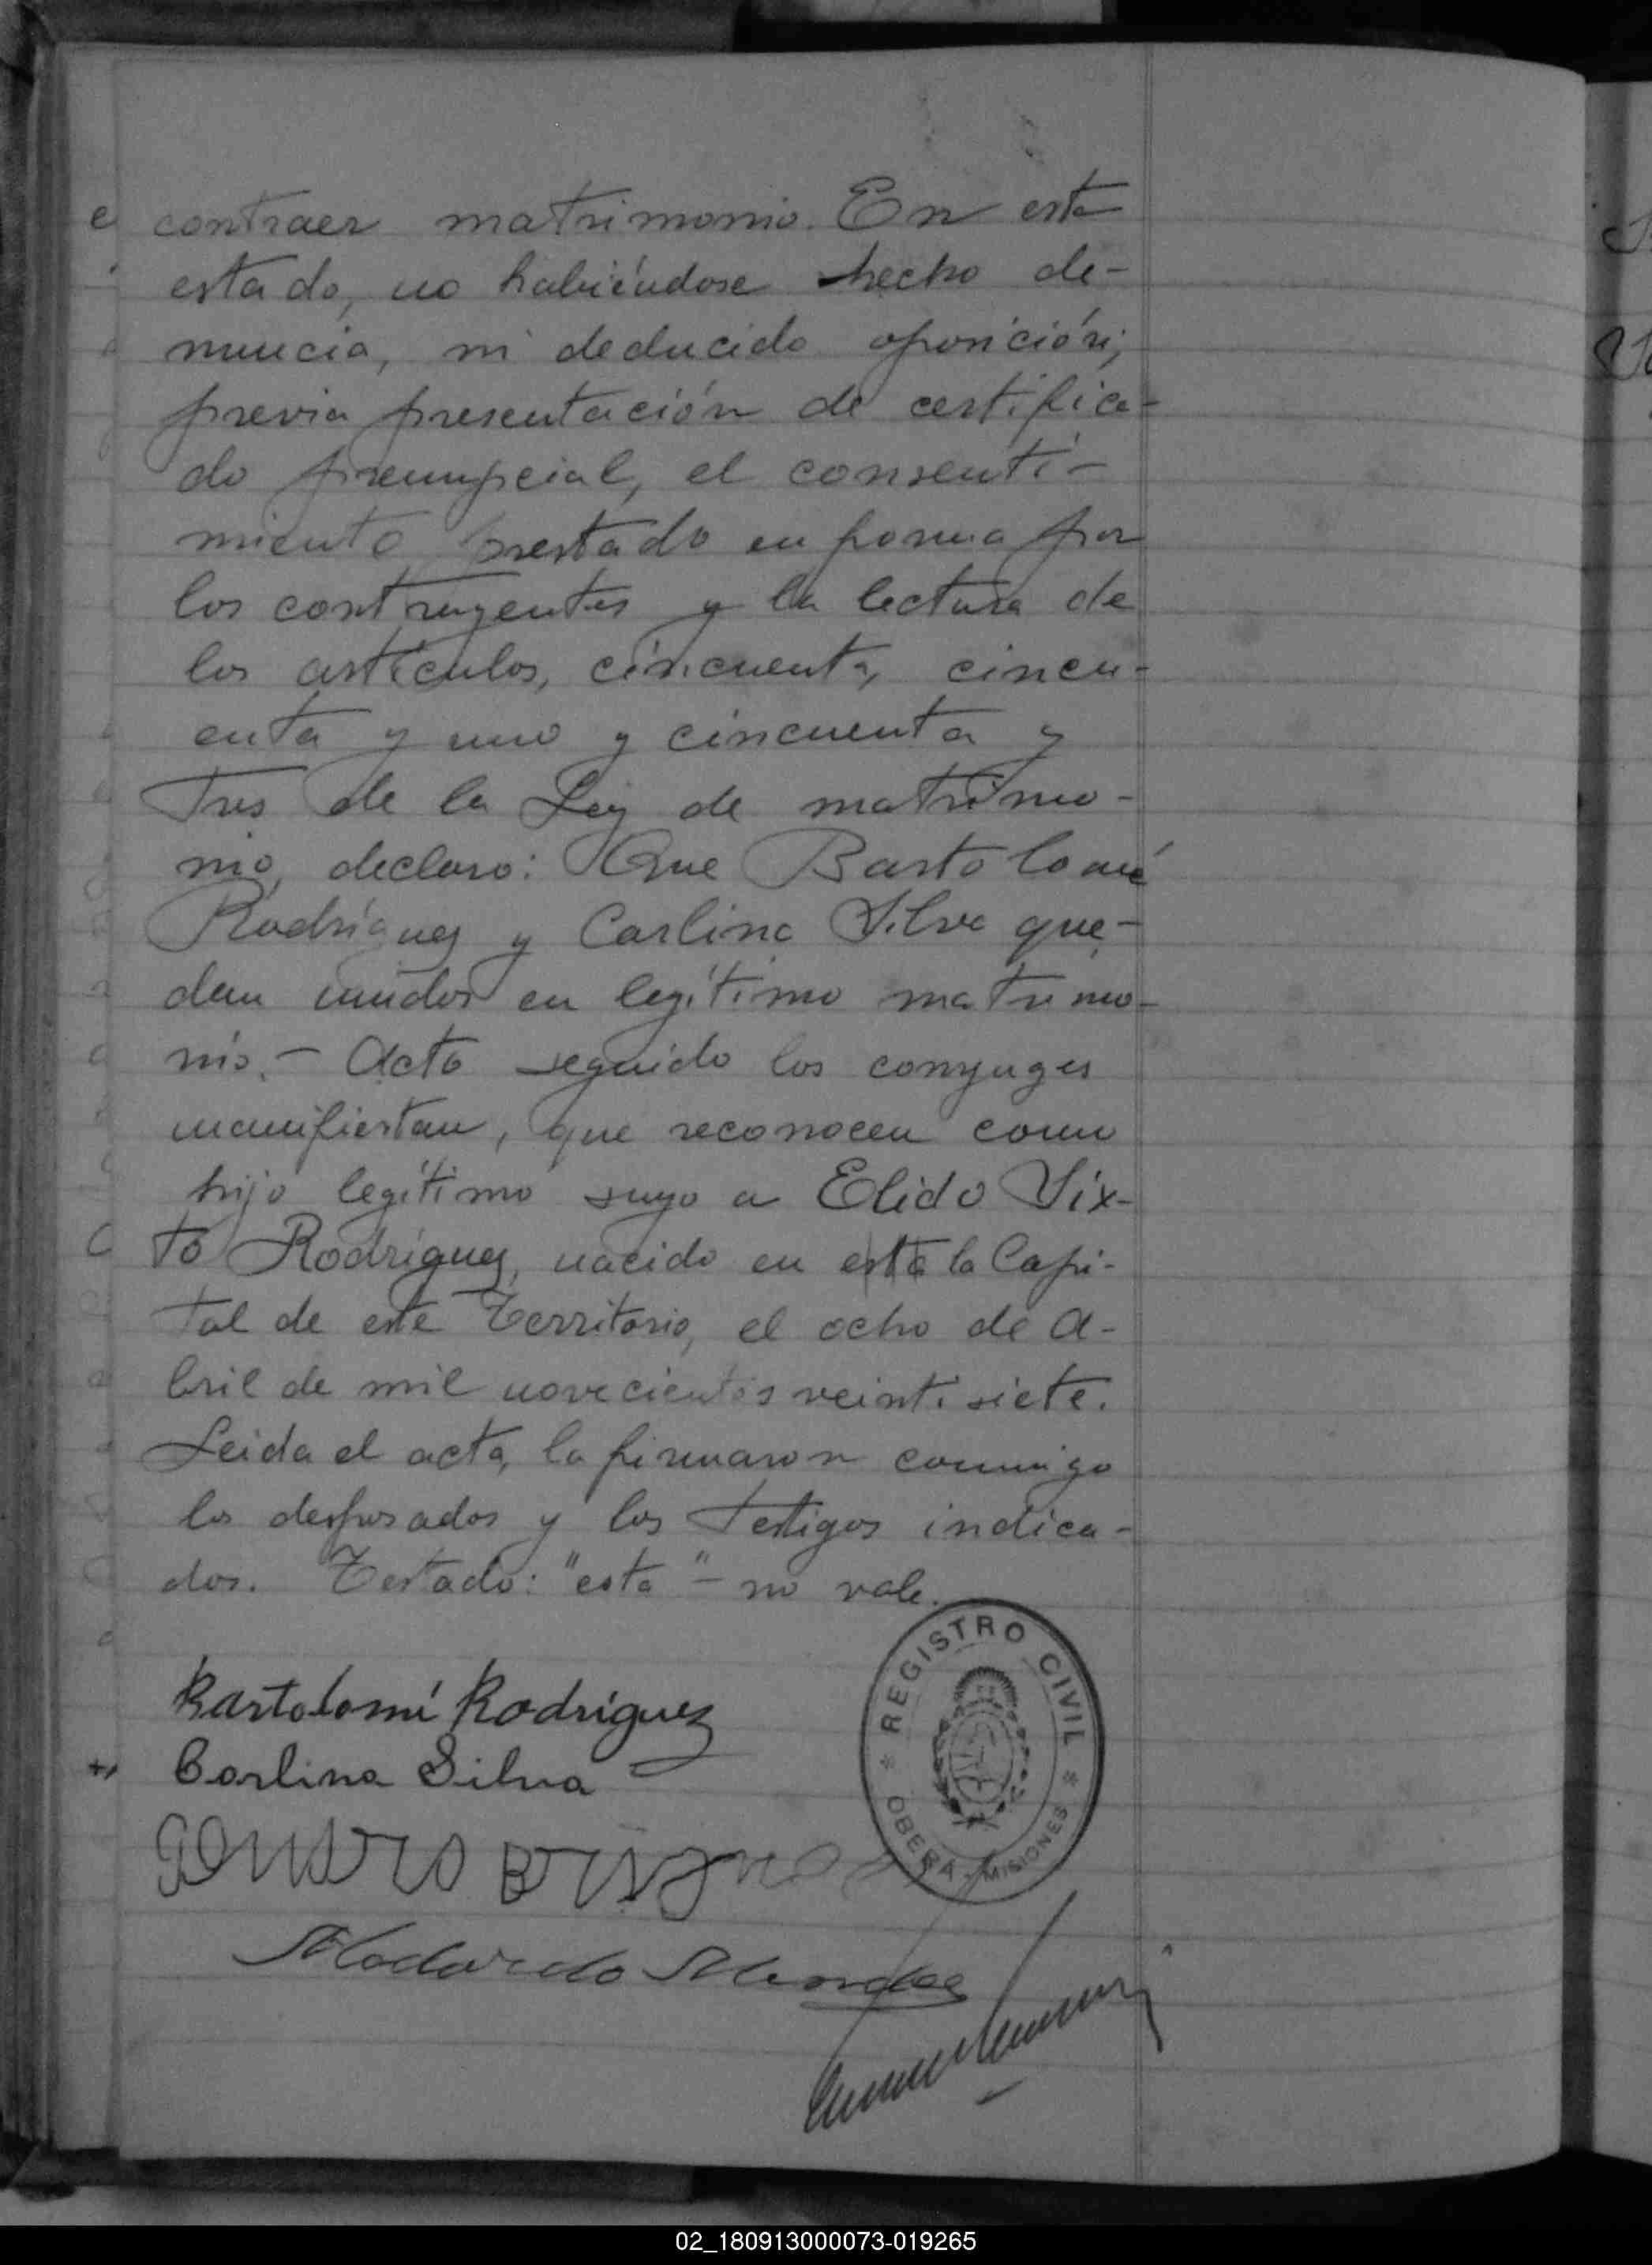 contraer matrimonio. En este
estado, no habiéndose hecho de-
nuncia, ni deducido oposición,
previa presentación de certifica-
do prenupcial, el consenti-
miento prestado en forma por
los contrayentes y la lectura de
los artículos, cincuenta, cincu-
enta y uno y cincuenta y
Tres de la Ley de matrimo-
nio, declaro: Que Bartolomé
Rodríguez y Carlina Silva que-
dan unidos en legítimo matrimo-
nio.- Acto seguido los conyuges
manifiestan, que reconocen como
hijo legítimo suyo a Elido Six-
to Rodríguez, nacido en esta la Capi-
tal de este Territorio, el ocho de A-
bril de mil novecientos veintisiete.
Leida el acta, la firmaron conmigo
los desposados y los Testigos indica-
dos. Testado: "esta" - no vale.
Bartolomé Rodríguez
Carlina Silva
REGISTRO CIVIL
OBERA - MISIONES
02_180913000073-019265